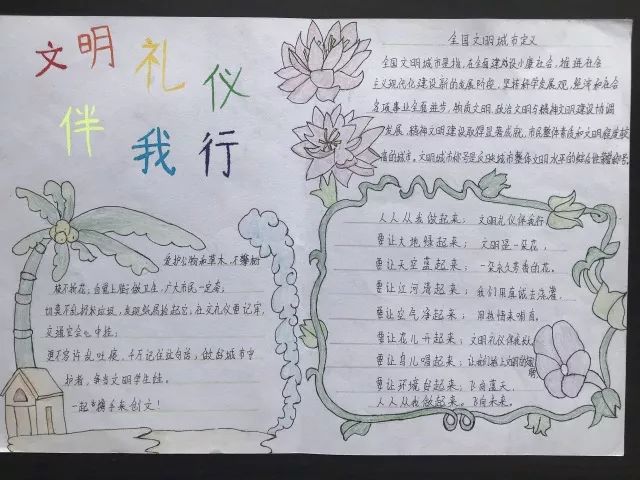 文明礼仪
伴我行
全国文明城市定义
全国文明城市是指,在全面建设小康社会,推进社会
主义现代化建设新的发展阶段,坚持科学发展观,经济和社会
各项事业全面进步,物质文明,政治文明与精神文明建设协调
发展,精神文明建设取得显著成就,市民整体素质和文明程度较
高的城市。文明城市称号是反映城市整体文明水平的综合性荣誉称号。
爱护公物和草木,不攀树
枝不折花,自觉上街做卫生,广大市民一定夸,
切莫不乱扔扔垃圾,发现纸屑捡起它,社交礼仪要记牢,
交通安全心中挂;
更不容许乱吐痰,千万记住这句话;做好城市守
护者,争当文明学生娃。
一起携手来创文!
人人从我做起来; 文明礼仪伴我行
要让大地绿起来; 文明是一朵花,
要让天空蓝起来; 一朵永久芳香的花。
要让江河清起来; 我们用真诚去浇灌,
要让空气净起来; 用热情来哺育,
要让花儿开起来; 文明礼仪伴我行
要让鸟儿唱起来; 让我们插上文明的翅膀
要让环境自起来; 飞向蓝天,
人人从我做起来。飞向未来。